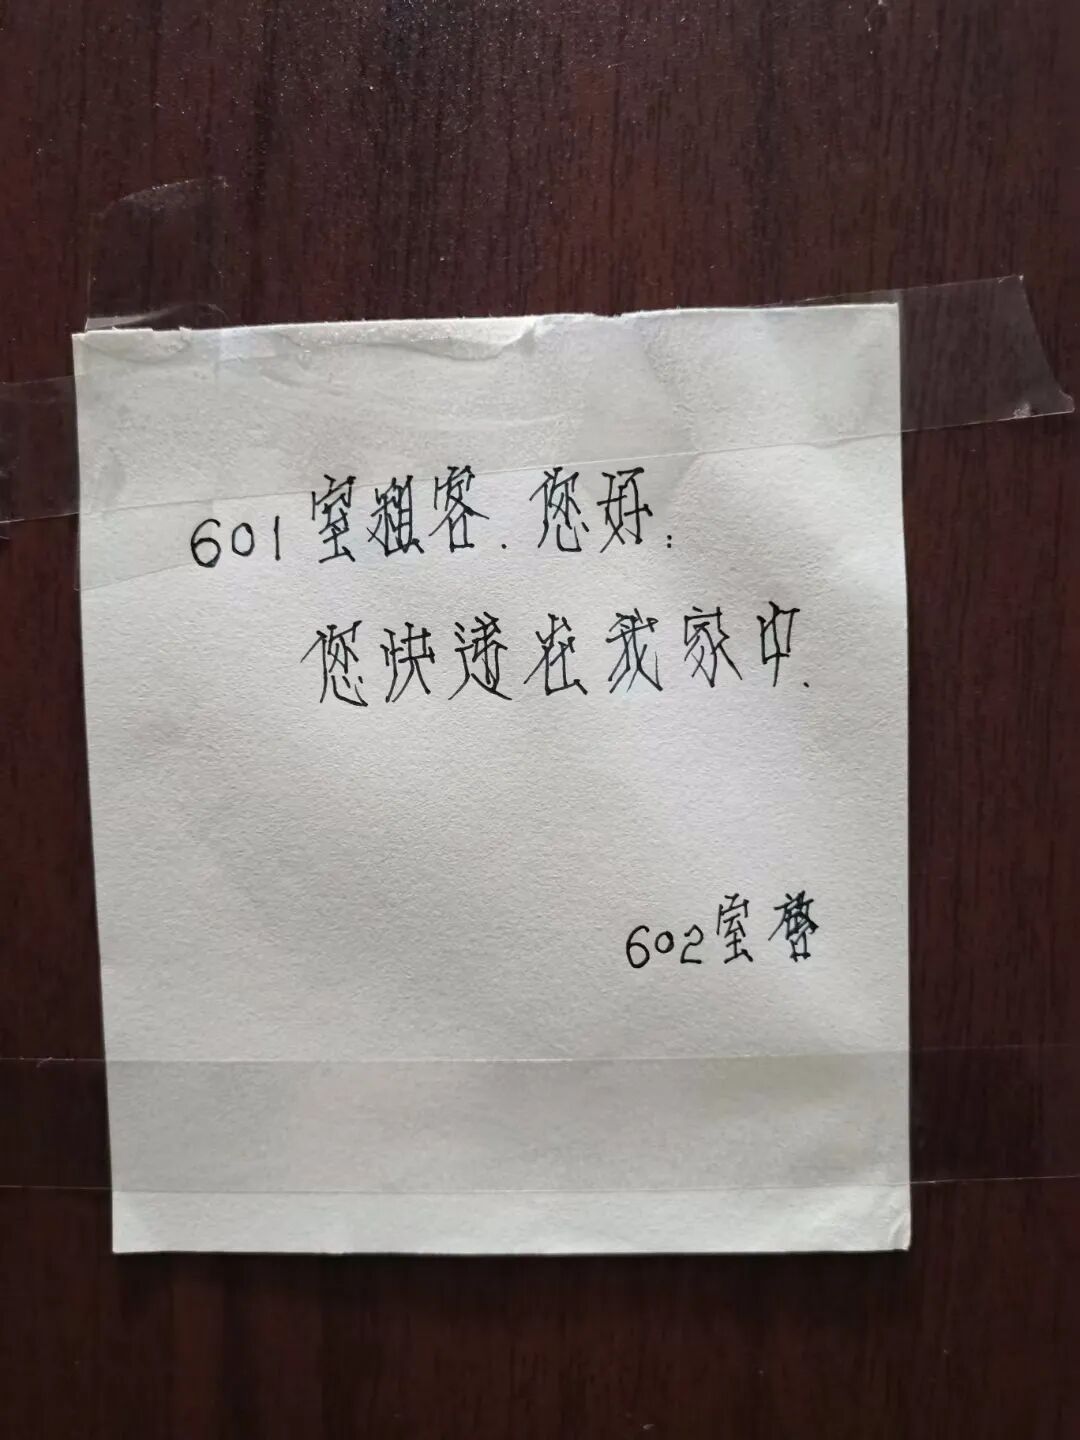 601室租客.您好:
您快递在我家中.
602室